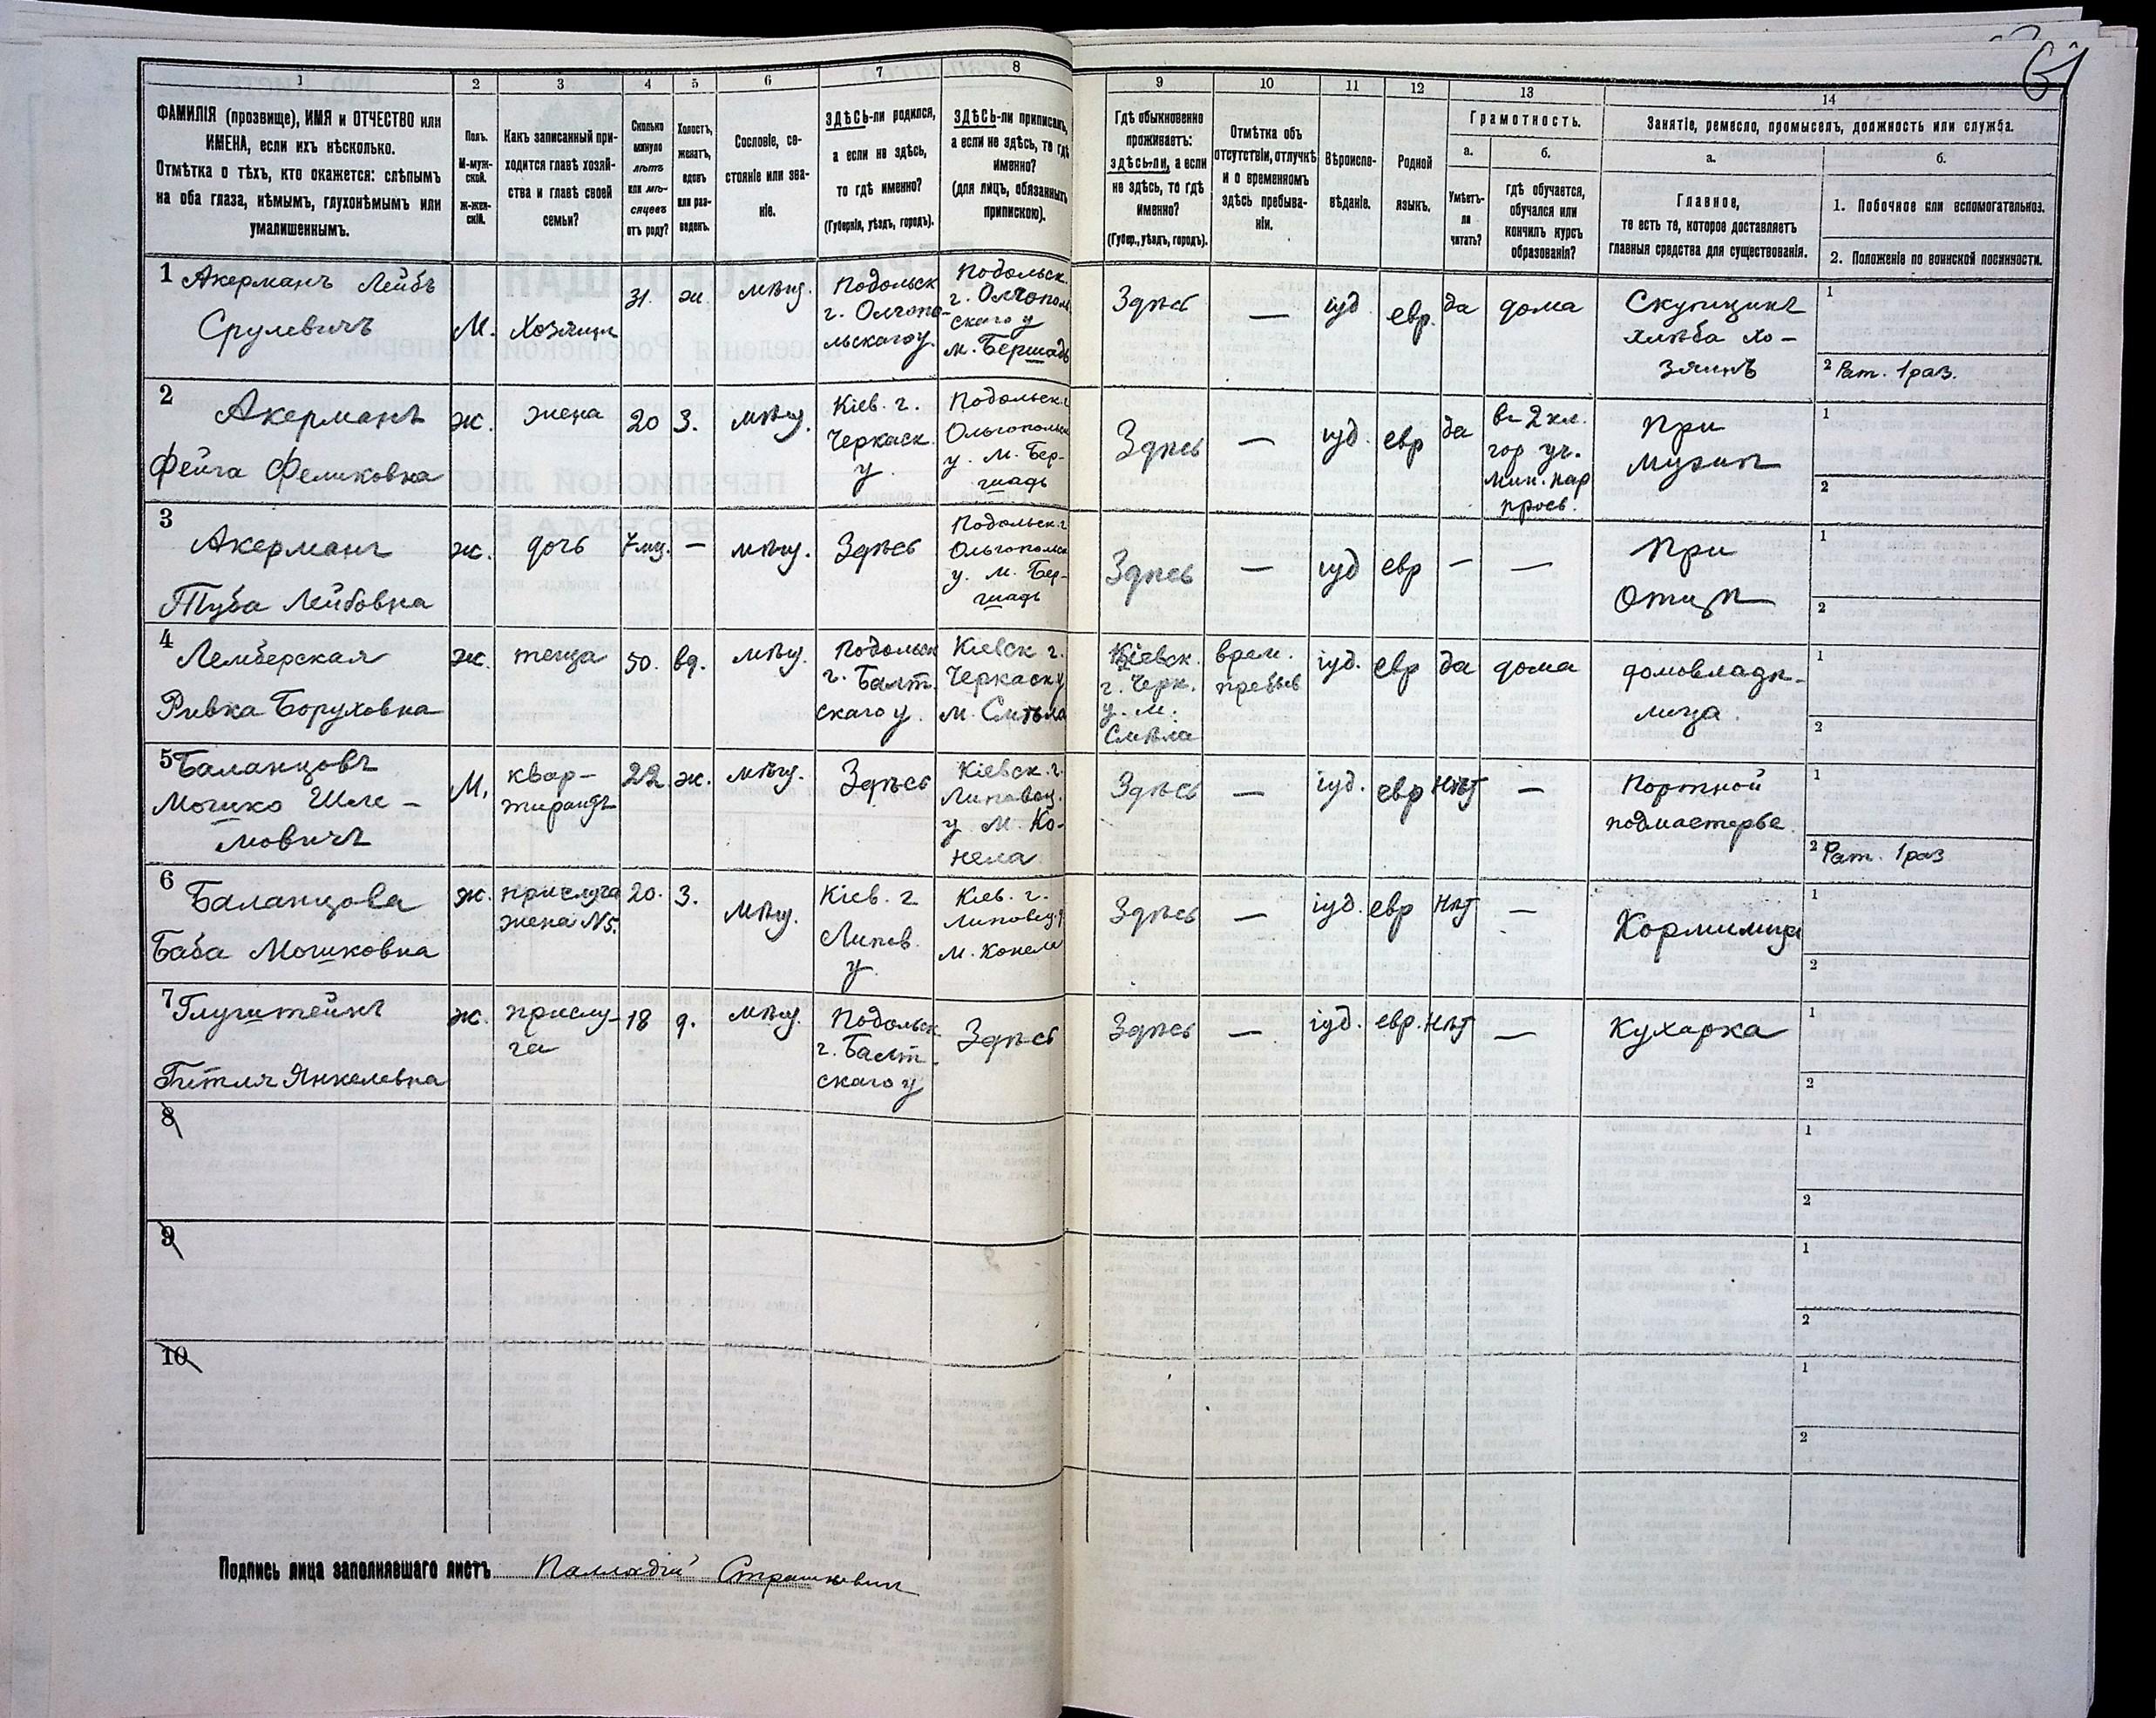 61
1 2 3 4 5 6 7 8 9 10 11 12 13 14
ФАМИЛІЯ (прозвище), ИМЯ и ОТЧЕСТВО или
ИМЕНА, если ихъ нѣсколько.
Отмѣтка о тѣхъ, кто окажется: слѣпымъ
на оба глаза, нѣмымъ, глухонѣмымъ или
умалишеннымъ.
Полъ.
М-муж-
ской.
Ж-жен-
скій.
Какъ записанный при-
ходится главѣ хозяй-
ства и главѣ своей
семьи?
Сколько
минуло
лѣтъ
или мѣ-
сяцевъ
отъ роду?
Холостъ,
женатъ,
вдовъ
или раз-
веденъ.
Сословіе, со-
стояніе или зва-
ніе.
ЗДѢСЬ-ли родился,
а если не здѣсь,
то гдѣ именно?
(Губернія, уѣздъ, городъ).
ЗДѢСЬ-ли приписанъ,
а если не здѣсь, то гдѣ
именно?
(для лицъ, обязанныхъ
припискою).
Гдѣ обыкновенно
проживаетъ:
здѣсь-ли, а если
не здѣсь, то гдѣ
именно?
(Губер., уѣздъ, городъ).
Отмѣтка объ
отсутствіи, отлучкѣ
и о временномъ
здѣсь пребыва-
ніи.
Вѣроиспо-
вѣданіе.
Родной
языкъ.
Грамотность.
а.
Умѣетъ-
ли
читать?
б.
гдѣ обучается,
обучался или
кончилъ курсъ
образованія?
Занятіе, ремесло, промыселъ, должность или служба.
а.
Главное,
то есть то, которое доставляетъ
главныя средства для существованія.
б.
1. Побочное или вспомогательное.
2. Положеніе по воинской повинности.
1 Акерманъ Лейбъ
Срулевичъ
М.
Хозяинъ
31.
ж
мѣщ.
Подольск
г. Олгопо-
льскаго у.
Подольск.
г. Олгополь
скаго у
м. Бершадь
Здѣсь
—
іуд
евр.
да
дома
Скупщикъ
хлѣба хо-
зяинъ
1
2 Рат. 1 раз.
2
Акерманъ
Фейга Феликовна
ж.
жена
20
З.
мѣщ.
Кіев. г.
Черкаск.
у.
Подольск. г
Ольгопольск
у. м. Бер-
шадь
Здѣсь
—
іуд
евр
да
въ 2 кл.
гор уч.
мин. нар
просв.
При
мужѣ
1
2
3
Акерманъ
Туба Лейбовна
ж.
дочь
7 мц.
—
мѣщ.
Здѣсь
Подольск. г
Ольгопольск
у. м. Бер-
шадь
Здѣсь
—
іуд
евр
—
—
При
отцѣ
1
2
4
Лемберская
Ривка Боруховна
ж.
теща
50.
вд.
мѣщ.
Подольск
г. Балт.
скаго у.
Кіевск г.
Черкаск у
м. Смѣла
Кіевск.
г. Черк.
у. м.
Смѣла
врем.
пребыв
іуд.
евр
да
дома
домовладѣ-
лица.
1
2
5 Баланцовъ
Мошко Шле-
мовичъ
М.
квар-
тирантъ
22
ж.
мѣщ.
Здѣсь
Кіевск. г.
Липовец.
у м. Ко-
нела
Здѣсь
—
іуд.
евр
нѣт
—
Портной
подмастерье
1
2 Рат. 1 раз
6
Баланцова
Баба Мошковна
ж.
прислуга
жена №5.
20.
З.
мѣщ.
Кіев. г
Липов.
у.
Кіев. г.
Липовец. у
м. Конела
Здѣсь
—
іуд.
евр
нѣт
—
Кормилица
1
2
7 Глузштейнъ
Гитля Янкелевна
ж.
прислу-
га
18
д.
мѣщ.
Подольск
г. Балт-
скаго у
Здѣсь
Здѣсь
—
іуд.
евр.
нѣт
—
Кухарка
1
2
8
1
2
9
1
2
10
1
2
Подпись лица заполнявшаго листъ Палладій Страшкевич